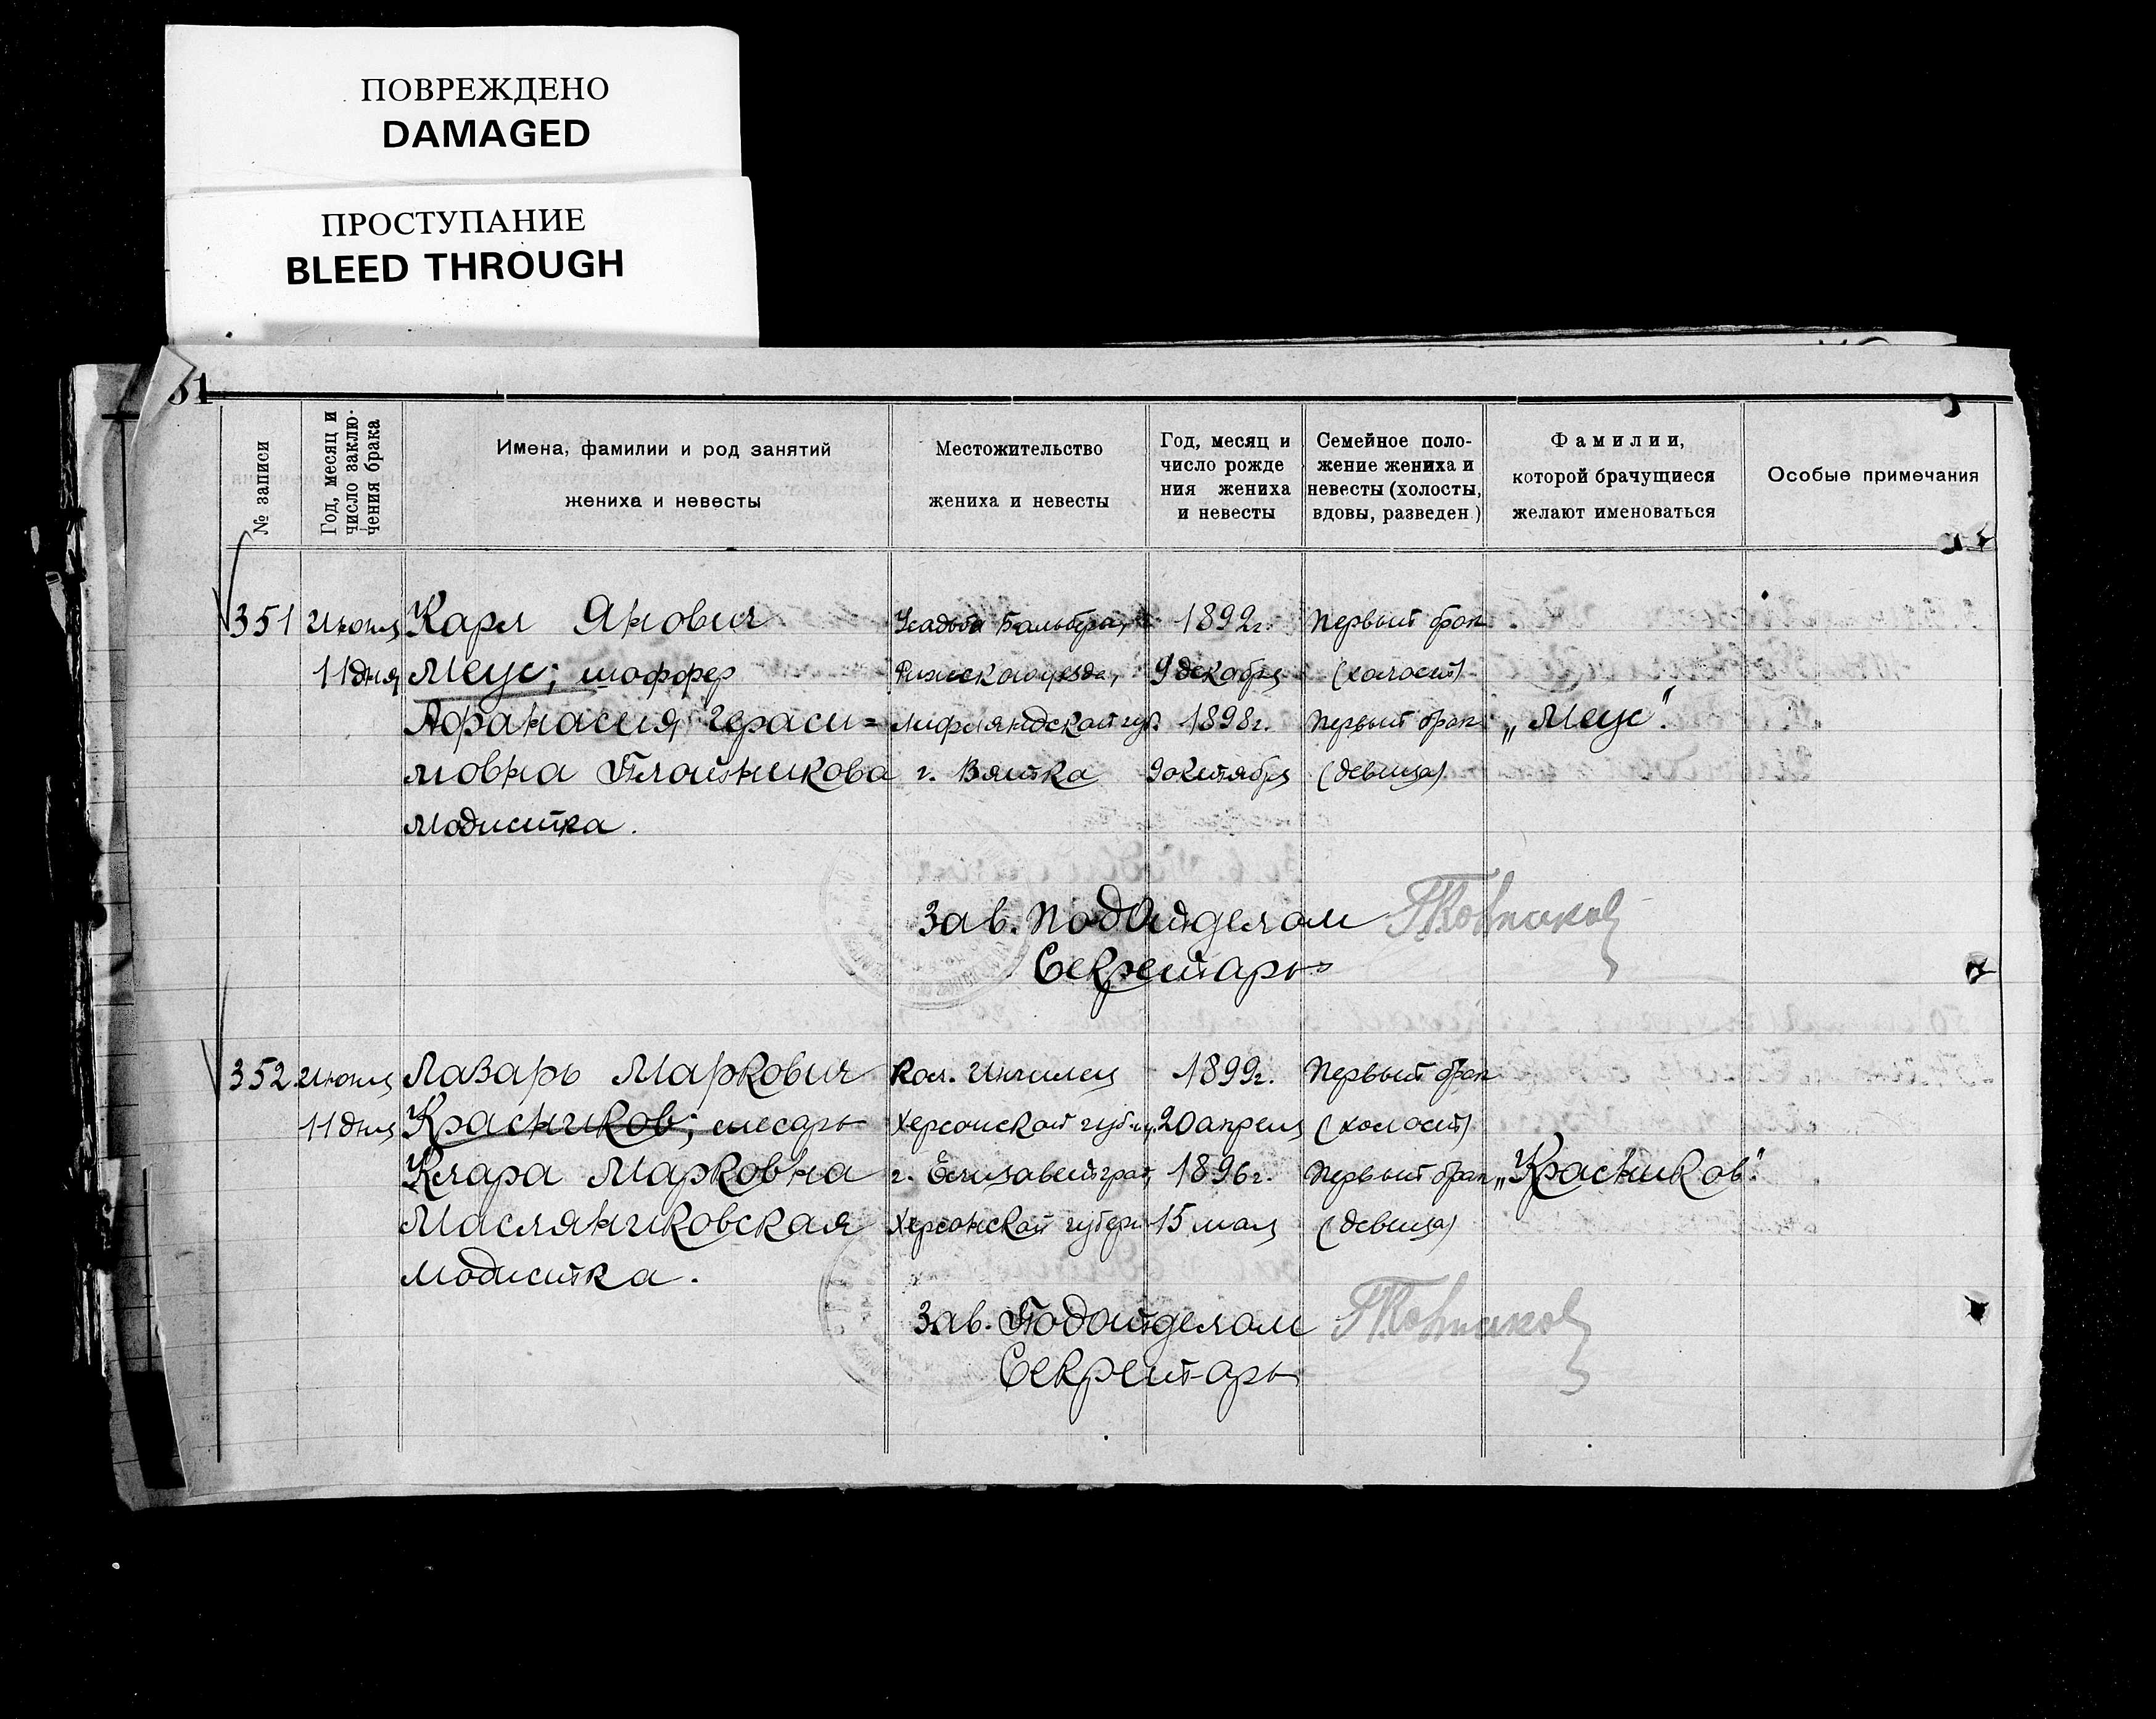 ПОВРЕЖДЕНО
DAMAGED
ПРОСТУПАНИЕ
BLEED THROUGH
№ записи
Год, месяц и
число заклю-
чения брака
Имена, фамилии и род занятий
жениха и невесты
Местожительство
жениха и невесты
Год, месяц и
число рожде
ния жениха
и невесты
Семейное поло-
жение жениха и
невесты (холосты,
вдовы, разведен)
Фамилии,
которой брачущиеся
желают именоваться
Особые примечания
351 Июня Карл Янович Усадьба 1892г. Первый брак
11 дня Меус; шоффер Рижского уезда, 9 декабря (холост)
Афанасия Гераси= Лифляндской губ. 1898г. Первый брак „Меус".
мовна Плотникова г. Вятка 9 октября (девица)
модистка.
Зав. Подотделом
Секретарь
352 Июня Лазарь Маркович Кол. 1899г. Первый брак
11 дня Красников; слесарь Херсонской 20 апреля (холост)
Клара Марковна г. Елисаветград, 1896г. Первый брак „Красников".
Масляниковская Херсонской губерн 15 мая (девица)
модистка.
Зав. Подотделом
Секретарь